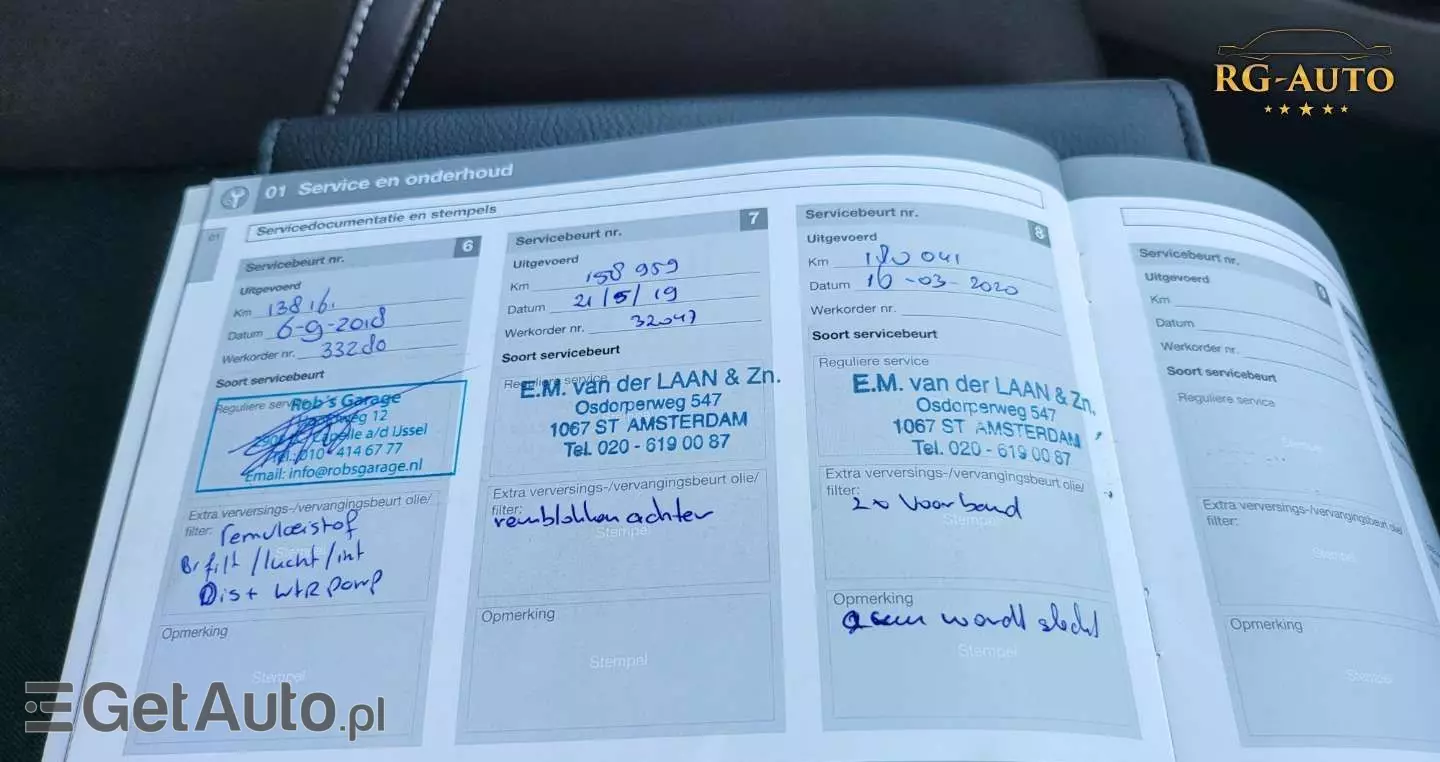 RG-AUTO
01 Service en onderhoud
01
Servicedocumentatie en stempels
Servicebeurt nr. 6
Uitgevoerd
Km 13816.
Datum 6-9-2018
Werkorder nr. 33280
Soort servicebeurt
Reguliere
Rob's Garage
weg 12
a/d IJssel
Tel.: 010 - 414 67 77
Email: info@robsgarage.nl
Extra verversings-/vervangingsbeurt olie/
filter: remvloeistof
Br filt /lucht/int
Dis+ wtr pomp
Stempel
Opmerking
Stempel
Servicebeurt nr. 7
Uitgevoerd
Km 158 959
Datum 21/5/19
Werkorder nr. 32047
Soort servicebeurt
Reguliere service
E.M. van der LAAN & Zn.
Osdorperweg 547
1067 ST AMSTERDAM
Tel. 020 - 619 00 87
Extra verversings-/vervangingsbeurt olie/
filter:
remblokken achter
Stempel
Opmerking
Stempel
Servicebeurt nr. 8
Uitgevoerd
Km 180 041
Datum 16-03-2020
Werkorder nr.
Soort servicebeurt
Reguliere service
E.M. van der LAAN & Zn.
Osdorperweg 547
1067 ST AMSTERDAM
Tel. 020 - 619 00 87
Extra verversings-/vervangingsbeurt olie/
filter:
2x Voorband
Stempel
Opmerking
wordt slecht
Stempel
Servicebeurt nr. 9
Uitgevoerd
Km
Datum
Werkorder nr.
Soort servicebeurt
Reguliere service
Stempel
Extra verversings-/vervangingsbeurt olie/
filter:
Stempel
Opmerking
Stempel
GetAuto.pl